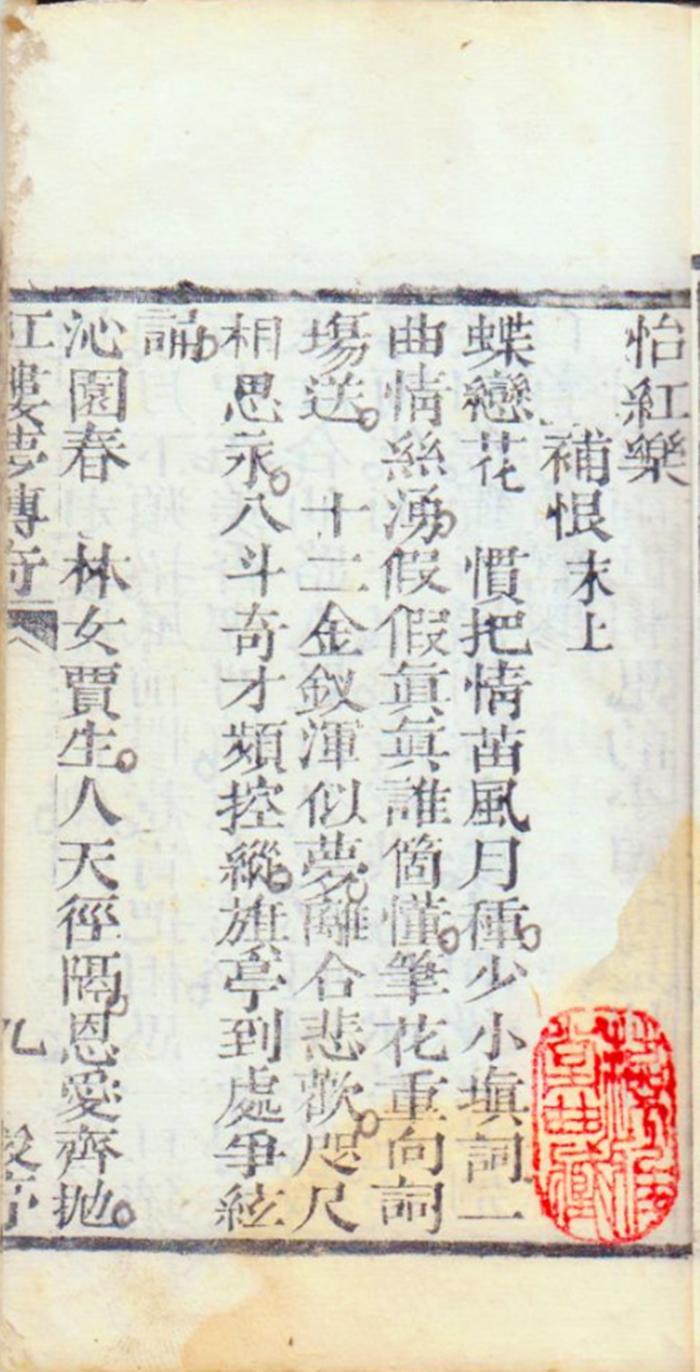 怡紅樂
補恨末上
蝶戀花　慣把情苗風月種。少小塡詞一
曲情絲湧。假假眞眞誰箇懂。筆花重向詞
塲送。　十二金釵渾似夢。離合悲歡。咫尺
相思永。八斗奇才頻控縱。旗亭到處爭絃
誦。
沁園春　林女賈生。人天徑隔。恩愛齊拋。
紅樓夢傳奇　九